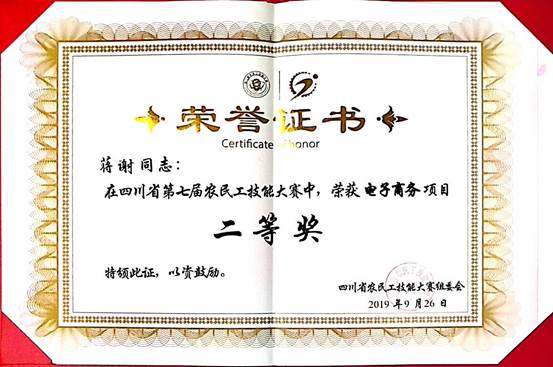 荣誉证书
Certificate of honor
蒋谢同志：
在四川省第七届农民工技能大赛中，荣获 电子商务 项目
二等奖
特颁此证，以资鼓励。
四川省农民工技能大赛组委会
2019 年 9 月 26 日